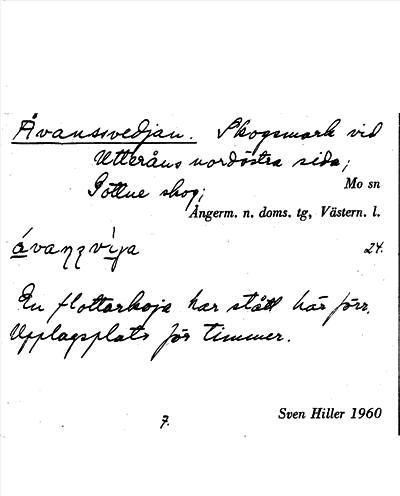 Åvanssvedjan. Skogsmark vid
Utteråns nordöstra sida;
Gottne skog;
Mo sn
Ångerm. n. doms. tg, Västern. l.
24.
En flottarkoja har stått här förr.
Upplagsplats för timmer.
7.
Sven Hiller 1960